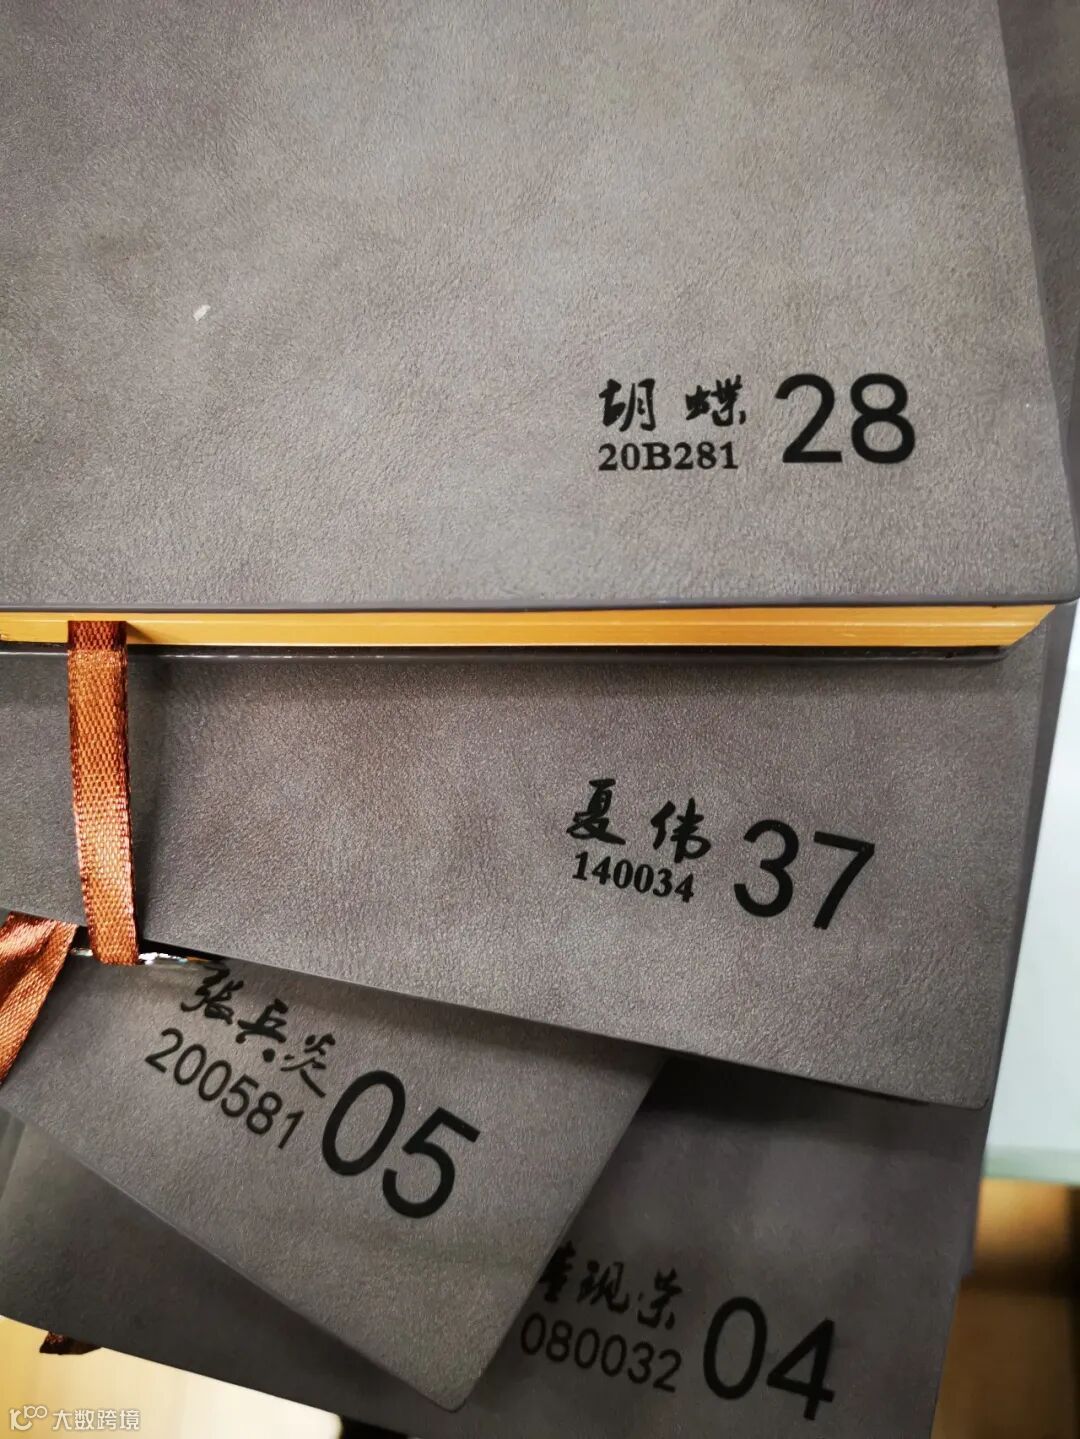 胡蝶 28
20B281
夏伟 37
140034
张兵炎 05
200581
现荣 04
080032
大数跨境